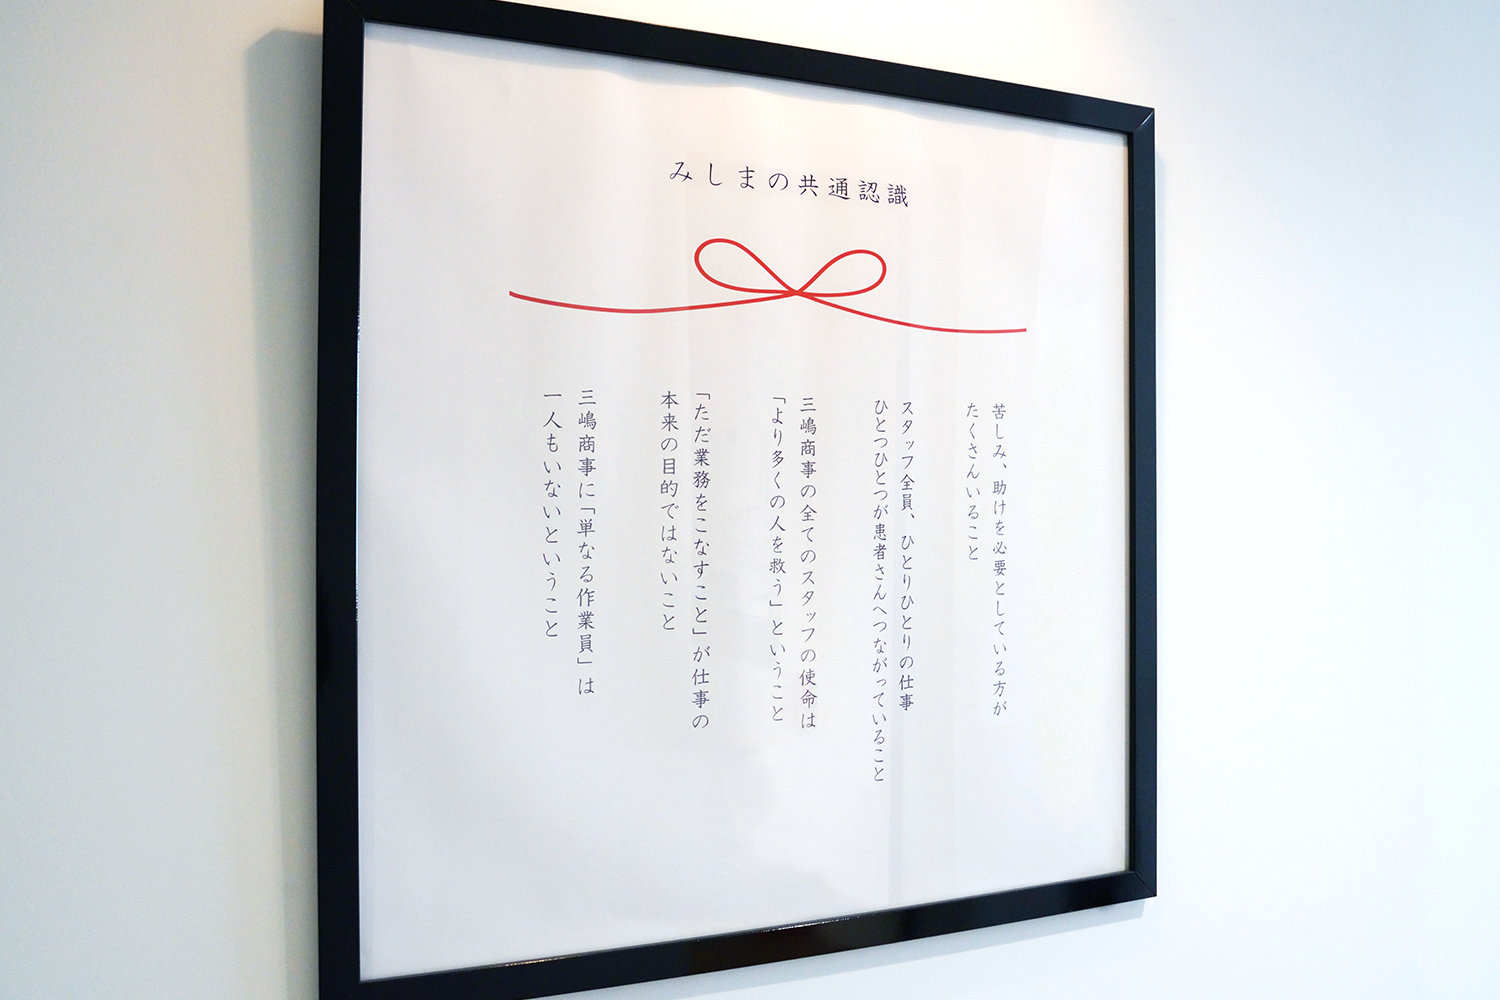 みしまの共通認識
苦しみ、助けを必要としている方が
たくさんいること
スタッフ全員、ひとりひとりの仕事
ひとつひとつが患者さんへつながっていること
三嶋商事の全てのスタッフの使命は
「より多くの人を救う」ということ
「ただ業務をこなすこと」が仕事の
本来の目的ではないこと
三嶋商事に「単なる作業員」は
一人もいないということ